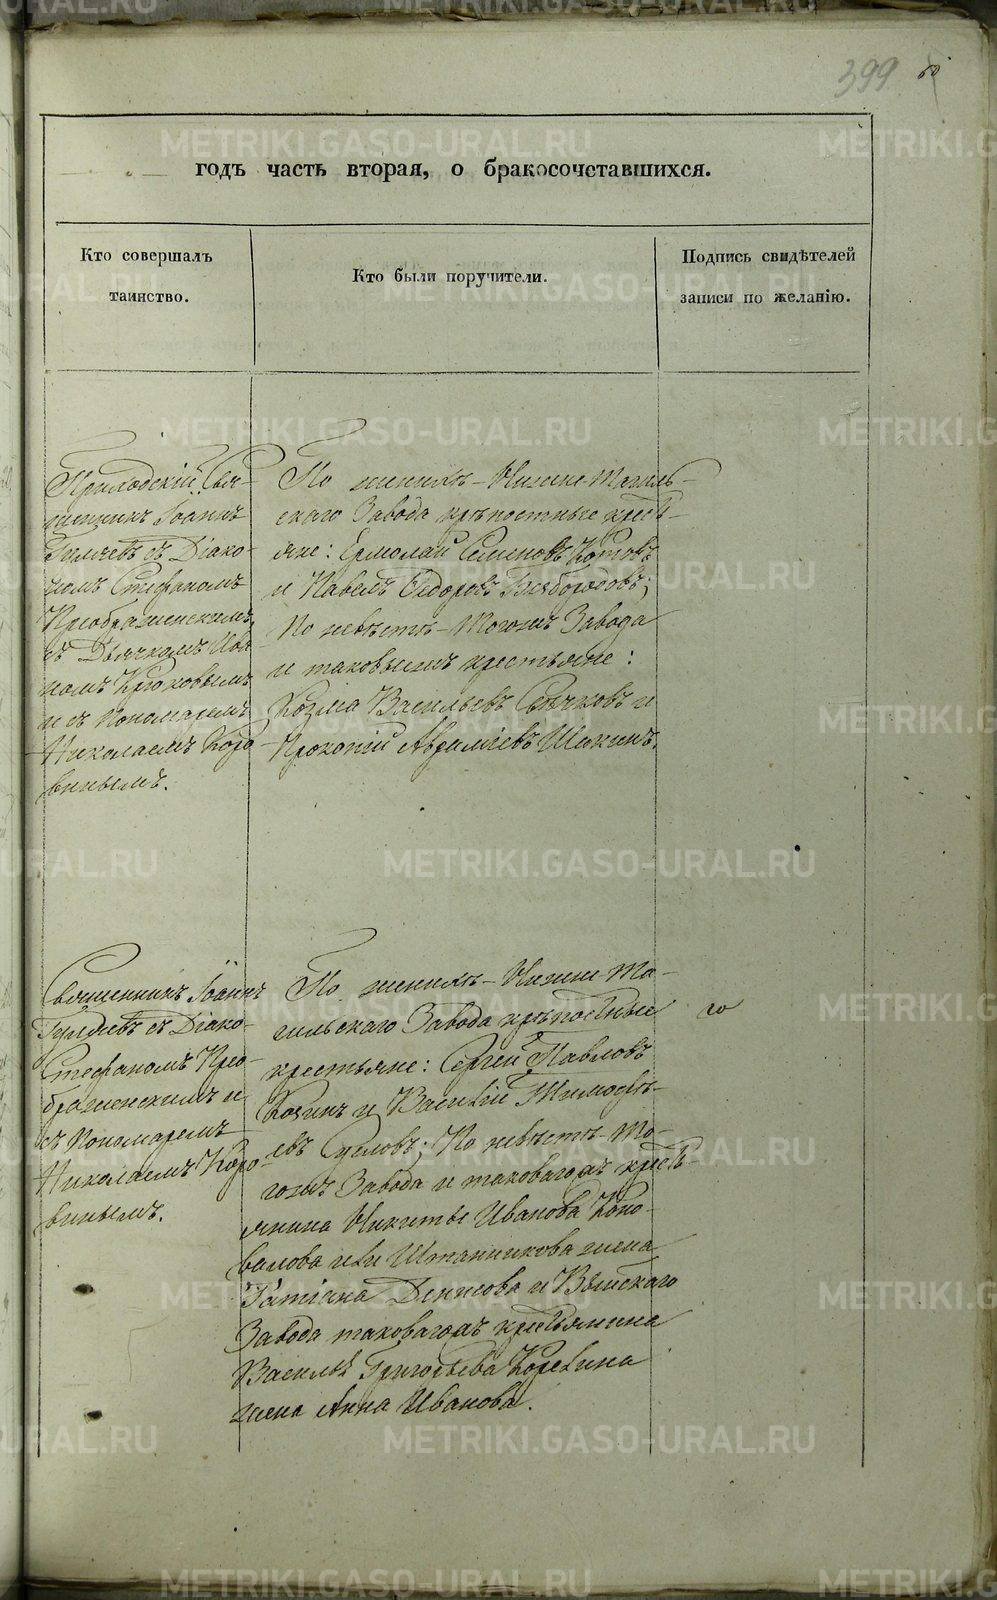 399
годъ часть вторая, о бракосочетавшихся.
Кто совершалъ
таинство.
Кто были поручители.
Подпись свидѣтелей
записи по желанію.
Приходскій Свя-
щенникъ Іоаннъ
съ Діако-
номъ Стефаномъ
Преображенскимъ,
съ Дьячкомъ Іоан-
номъ Крюковымъ
и съ Пономаремъ
Николаемъ Коро-
винымъ.
По женихѣ – Нижне Тагиль-
скаго Завода крѣпостные кресть-
яне: Ермолай Семеновъ Котовъ
и Павелъ Ѳедоровъ
По невѣстѣ – Тогожъ Завода
и таковыежъ крестьяне:
Козма Васильевъ Сычковъ и
Прокопій Авраміевъ Шикинъ.
Священникъ Іоаннъ
съ Діако-
Стефаномъ Прео-
браженскимъ и
съ Пономаремъ
Николаемъ Коро-
винымъ.
По женихѣ – Нижне Та-
гильскаго Завода крѣпостные
крестьяне: Сергей Павловъ
и Василій Тимофѣ-
евъ По невѣстѣ – То-
гожъ Завода и таковагожъ кресть-
янина Никиты Иванова Коно-
валова или Штанникова жена
Татіана Денисова и Выйскаго
Завода таковагожъ крестьянина
Василья Григорьева Корекина
жена Анна Иванова.
METRIKI.GASO-URAL.RU